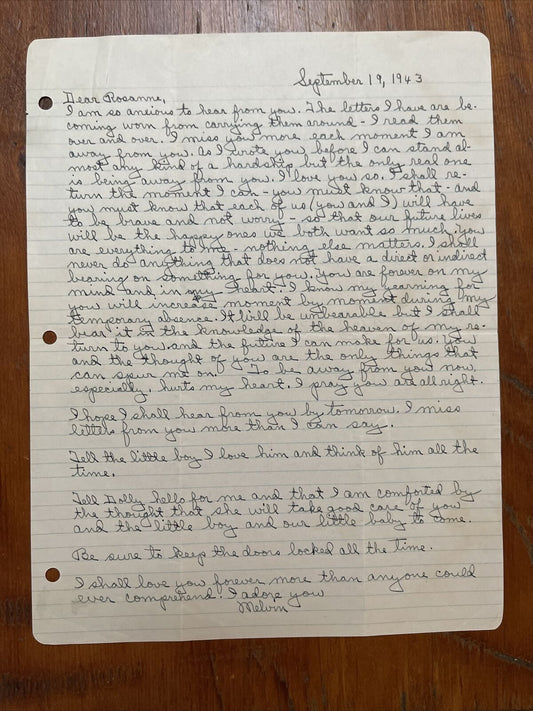 September 19, 1943
Dear Rosanne,
I am so anxious to hear from you. The letters I have are be-
coming worn from carrying them around - I read them
over and over. I miss you more each moment I am
away from you. As I wrote you before I can stand al-
most any kind of a hardship but the only real one
is being away from you. I love you so. I shall re-
turn the moment I can - you must know that - and
you must know that each of us (you and I) will have
to be brave and not worry - so that our future lives
will be the happy ones we both want so much. You
are everything to me - nothing else matters. I shall
never do anything that does not have a direct or indirect
bearing on something for you. You are forever on my
mind and in my heart. I know my yearning for
you will increase moment by moment during my
temporary absence. It'll be unbearable but I shall
bear it in the knowledge of the heaven of my re-
turn to you and the future I can make for us. You
and the thought of you are the only things that
can spur me on. To be away from you now,
especially, hurts my heart. I pray you are all right.
I hope I shall hear from you by tomorrow. I miss
letters from you more than I can say.
Tell the little boy I love him and think of him all the
time.
Tell Dolly hello for me and that I am comforted by
the thought that she will take good care of you
and the little boy and our little baby to come.
Be sure to keep the doors locked all the time.
I shall love you forever more than anyone could
ever comprehend. I adore you
Melvin